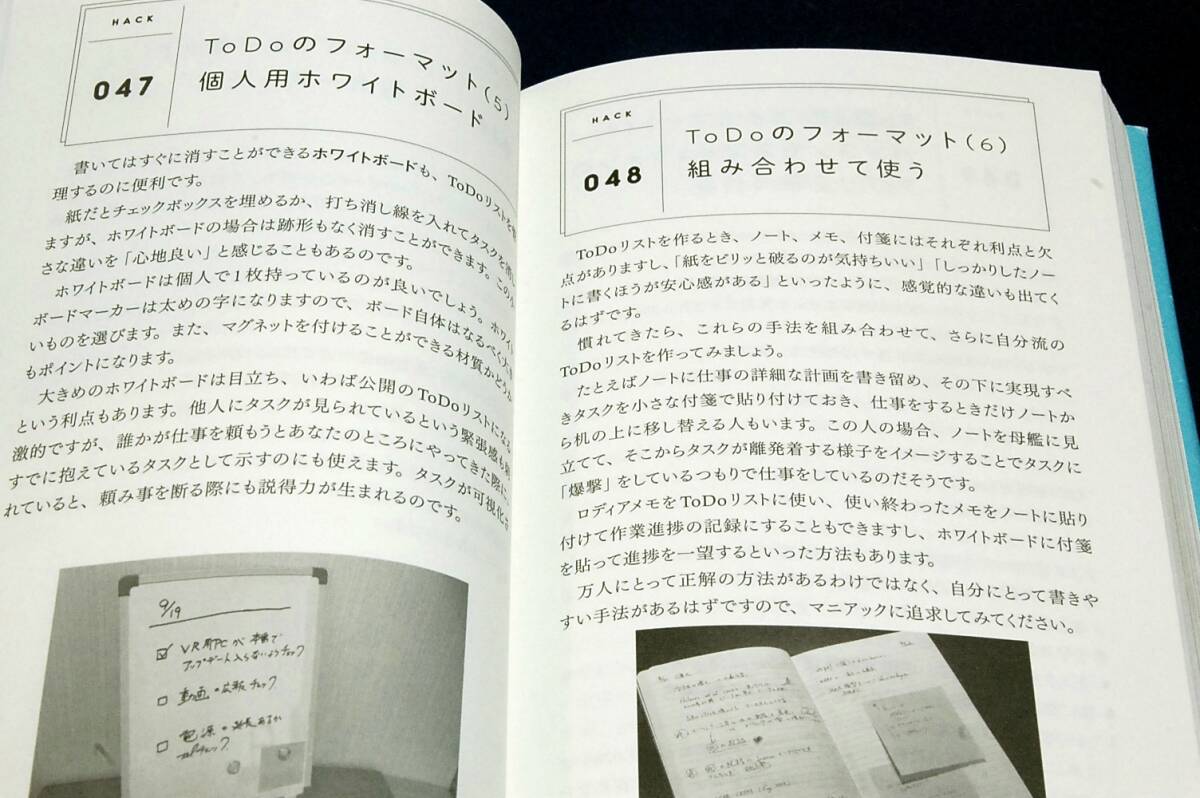 HACK
047
ToDoのフォーマット(5)
個人用ホワイトボード
書いてはすぐに消すことができるホワイトボードも、ToDoリストを
理するのに便利です。
紙だとチェックボックスを埋めるか、打ち消し線を入れてタスクを
ますが、ホワイトボードの場合は跡形もなく消すことができます。この
さな違いを「心地良い」と感じることもあるのです。
ホワイトボードは個人で1枚持っているのが良いでしょう。ホワイト
ボードマーカーは太めの字になりますので、ボード自体はなるべく大
いものを選びます。また、マグネットを付けることができる材質かどうか
もポイントになります。
大きめのホワイトボードは目立ち、いわば公開のToDoリストになる
という利点もあります。他人にタスクが見られているという緊張感も刺
激的ですが、誰かが仕事を頼もうとあなたのところにやってきた際に、
すでに抱えているタスクとして示すのにも使えます。タスクが可視化さ
れていると、頼み事を断る際にも説得力が生まれるのです。
9/19
VR用PCが本番で
アップデート入らないようチェック
動画の広報チェック
電源の
チェック
HACK
048
ToDoのフォーマット(6)
組み合わせて使う
ToDoリストを作るとき、ノート、メモ、付箋にはそれぞれ利点と欠
点がありますし、「紙をビリッと破るのが気持ちいい」「しっかりしたノー
トに書くほうが安心感がある」といったように、感覚的な違いも出てく
るはずです。
慣れてきたら、これらの手法を組み合わせて、さらに自分流の
ToDoリストを作ってみましょう。
たとえばノートに仕事の詳細な計画を書き留め、その下に実現すべ
きタスクを小さな付箋で貼り付けておき、仕事をするときだけノートか
ら机の上に移し替える人もいます。この人の場合、ノートを母艦に見
立てて、そこからタスクが離発着する様子をイメージすることでタスクに
「爆撃」をしているつもりで仕事をしているのだそうです。
ロディアメモをToDoリストに使い、使い終わったメモをノートに貼り
付けて作業進捗の記録にすることもできますし、ホワイトボードに付箋
を貼って進捗を一望するといった方法もあります。
万人にとって正解の方法があるわけではなく、自分にとって書きや
すい手法があるはずですので、マニアックに追求してみてください。